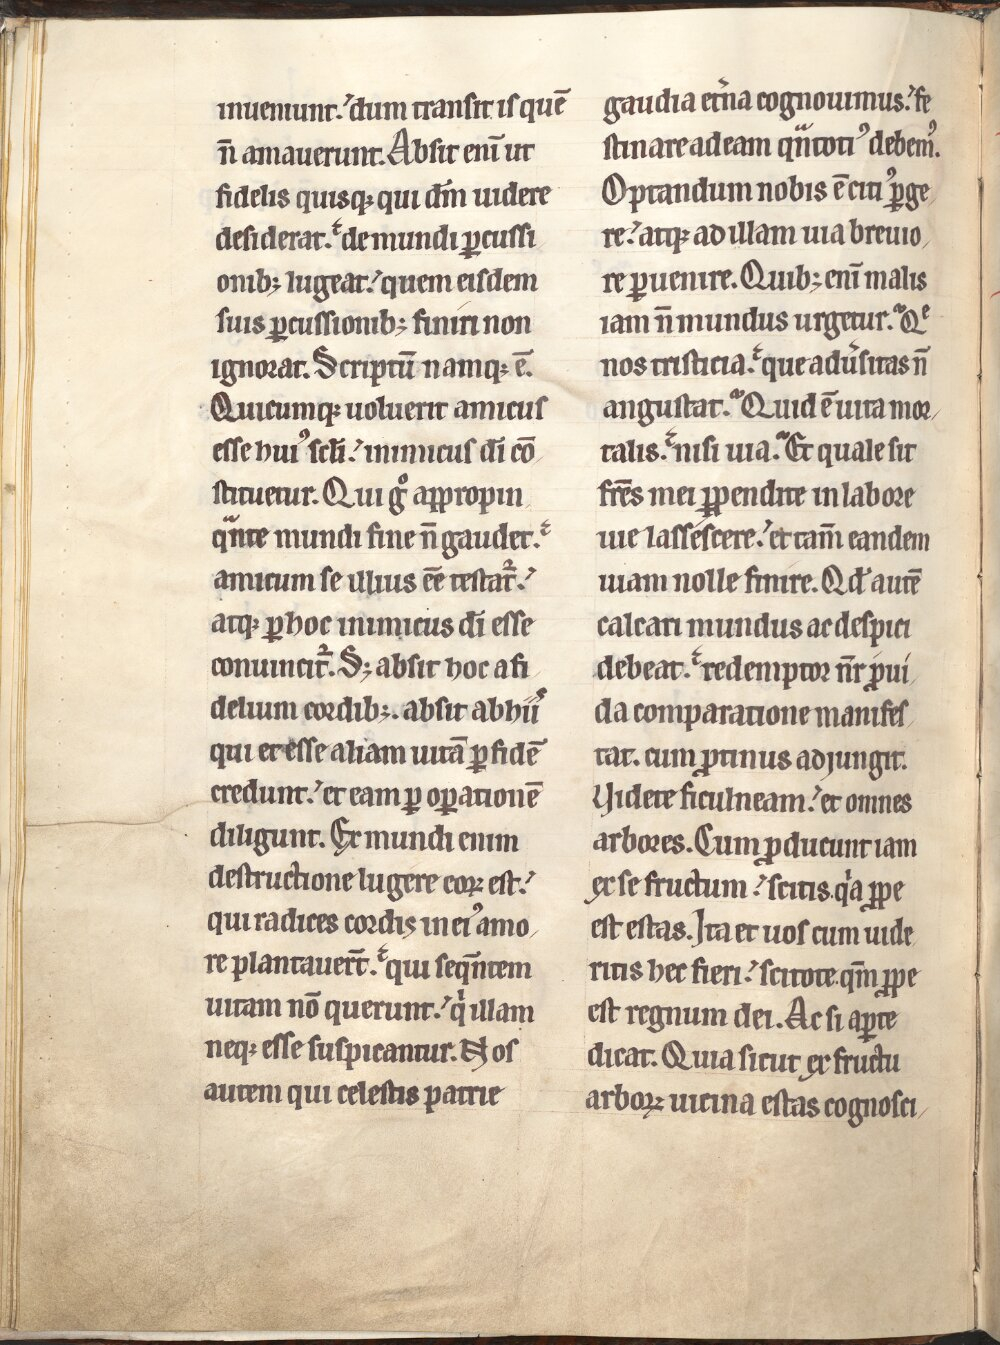 inueniunt. dum transit is quē
n̄ amauerunt. Absit eni̅ ut
fidelis quisq; qui dm̅ uidere
desiderat. de mundi ꝑcussi
onib; lugeat. quem eisdem
suis ꝑcussionib; finiri non
ignorat. Scriptū namq; ē.
Quicumq; uoluerit amicus
esse huiꝰ scl̅i. inimicus di̅ cō
stituetur. Qui gͦ appropin
q̅nte mundi fine n̄ gaudet.
amicum se illius ee̅ testat᷑.
atq; ꝑ hoc inimicus di̅ esse
conuincit᷑. S; absit hoc a fi
delium cordib;. absit ab hiis
qui et esse aliam uitā ꝑ fidē
credunt. et eam ꝑ oꝑationē
diligunt. Ex mundi enim
destructione lugere eoꝝ est.
qui radices cordis in eiꝰ amo
re plantauer̅t. qui seq̅ntem
uitam nō querunt. qͥ illam
neq; esse suspicantur. Nos
autem qui celestis patrie
gaudia et̅na cognouimus. fe
stinare ad eam q̅ntotiꝰ debemꝰ.
Optandum nobis ē citiꝰ ꝑge
re. atq; ad illam uia breuio
re ꝑuenire. Quib; eni̅ malis
iam n̄ mundus urgetur. Qͤ
nos tristicia. que adu̅sitas n̄
angustat. Quid ē uita mor
talis. nisi uia. Et quale sit
fr̅es mei ꝑpendite in labore
uie lassescere. et tam̅ eandem
uiam nolle finire. Qd̅ autē
calcari mundus ac despici
debeat. redemptor nr̅ ꝓui
da comparatione manifes
tat. cum ꝓtinus adjungit.
Uidete ficulneam. et omnes
arbores. Cum ꝓducunt iam
ex se fructum. scitis qͥa ꝓpe
est estas. Ita et uos cum uide
ritis hec fieri. scitote qm̅ ꝓpe
est regnum dei. Ac si aꝑte
dicat. Quia sicut ex fructu
arboꝝ uicina estas cognosci